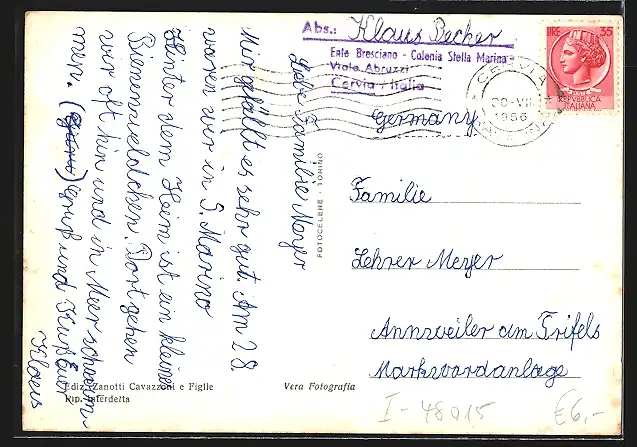 Abs.: Klaus Becker
Ente Bresciano - Colonia Stella Marina
Viale Abruzzi
Cervia / Italia
LIRE 35
REPVBBLICA
ITALIANA
CERVIA
1956
Germany
Familie
Lehrer Meyer
Annweiler am Trifels
Markwardanlage
Liebe Familie Mayer
Mir gefällt es sehr gut. Am 28.
waren wir in S. Marino
Hinter dem Heim ist ein kleines
Bienenwäldchen. Dort gehen
wir oft hin und in Meer schwim
men. () Gruß und Kuß Euer
Klaus
FOTOCELERE - TORINO
Ediz. Zanotti Cavazzoni e Figlie
Rip. interdetta
Vera Fotografia
I-48015
€6,-